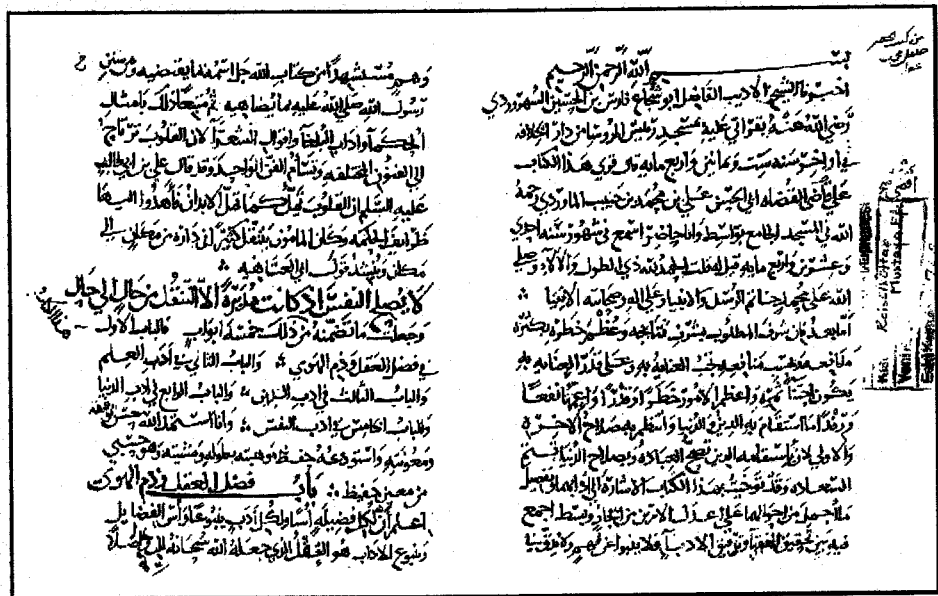 بسم الله الرحمن الرحيم
اخبرنا الشيخ الاديب الفاضل ابو شجاع فارس بن الحسين السهروردي
رضي الله عنه بقراتي عليه بمسجد رئيس الروسا من دار الخلافه
في اواخر سنه ست وثمانين واربع مايه قال قري هذا الكتاب
على اقضى القضاه ابي الحسن علي بن محمد بن حبيب الماوردي رحمه
الله في المسجد الجامع بواسط وانا حاضر اسمع في شهور سنه احدي
وعشرين واربع مايه قيل له قلت الحمد لله ذي الطول والالاء وصلى
الله على محمد خاتم الرسل والانبياء وعلى اله وصحابته الاتقيا
اما بعد فان شرف المطلوب بشرف نتايجه وعظم خطره بكثره
منافعه وبحسب منافعه تجب العنايه به وعلى قدر العنايه به
يكون اجتنا ثمرته واعظم الامور خطرا وقدرا واعمها نفعا
ورفدا ما استقام به الدين والدنيا وانتظم به صلاح الاخره
والاولى لان باستقامه الدين تصح العباده وبصلاح الدنيا تتم
السعاده وقد توخيت بهذا الكتاب الاشاره الى ادابهما وتفصيل
ما اجمل من احوالهما على اعدل الامرين من ايجاز وبسط اجمع
فيه بين تحقيق الفقها وترقيق الادبا فلا ينبو عن فهم ولا يدق في
وهم مستشهدا من كتاب الله جل اسمه بما يقتضيه ومن سنن
رسول الله صلى الله عليه بما يضاهيه ثم متبعا ذلك بامثال
الحكما واداب البلغا واقوال الشعرا لان القلوب ترتاح
الى الفنون المختلفه وتسام الفن الواحد وقد قال علي بن ابي طالب
عليه السلم ان القلوب تمل كما تمل الابدان فاهدوا اليها
طرايف الحكمه وكان المامون ينتقل كثيرا في داره من مكان الى
مكان وينشد قول ابي العتاهيه
لا يصلح النفس اذ كانت مدبرة الا التنقل من حال الى حال
وجعلت ما تضمنه من ذلك خمسه ابواب فالباب الاول
في فضل العقل وذم الهوي والباب الثاني في ادب العلم
والباب الثالث في ادب الدين والباب الرابع في ادب الدنيا
والباب الخامس في ادب النفس وانا استمد الله حسن توفيقه
ومعونته واستودعه حفظ موهبته بطوله ومشيته وهو حسبي
من معين وحفيظ باب فضل العقل وذم الهوى
اعلم ان لكل فضيله اسا ولكل ادب ينبوعا واس الفضايل
وينبوع الاداب هو العقل الذي جعله الله سبحانه للدين اصلا